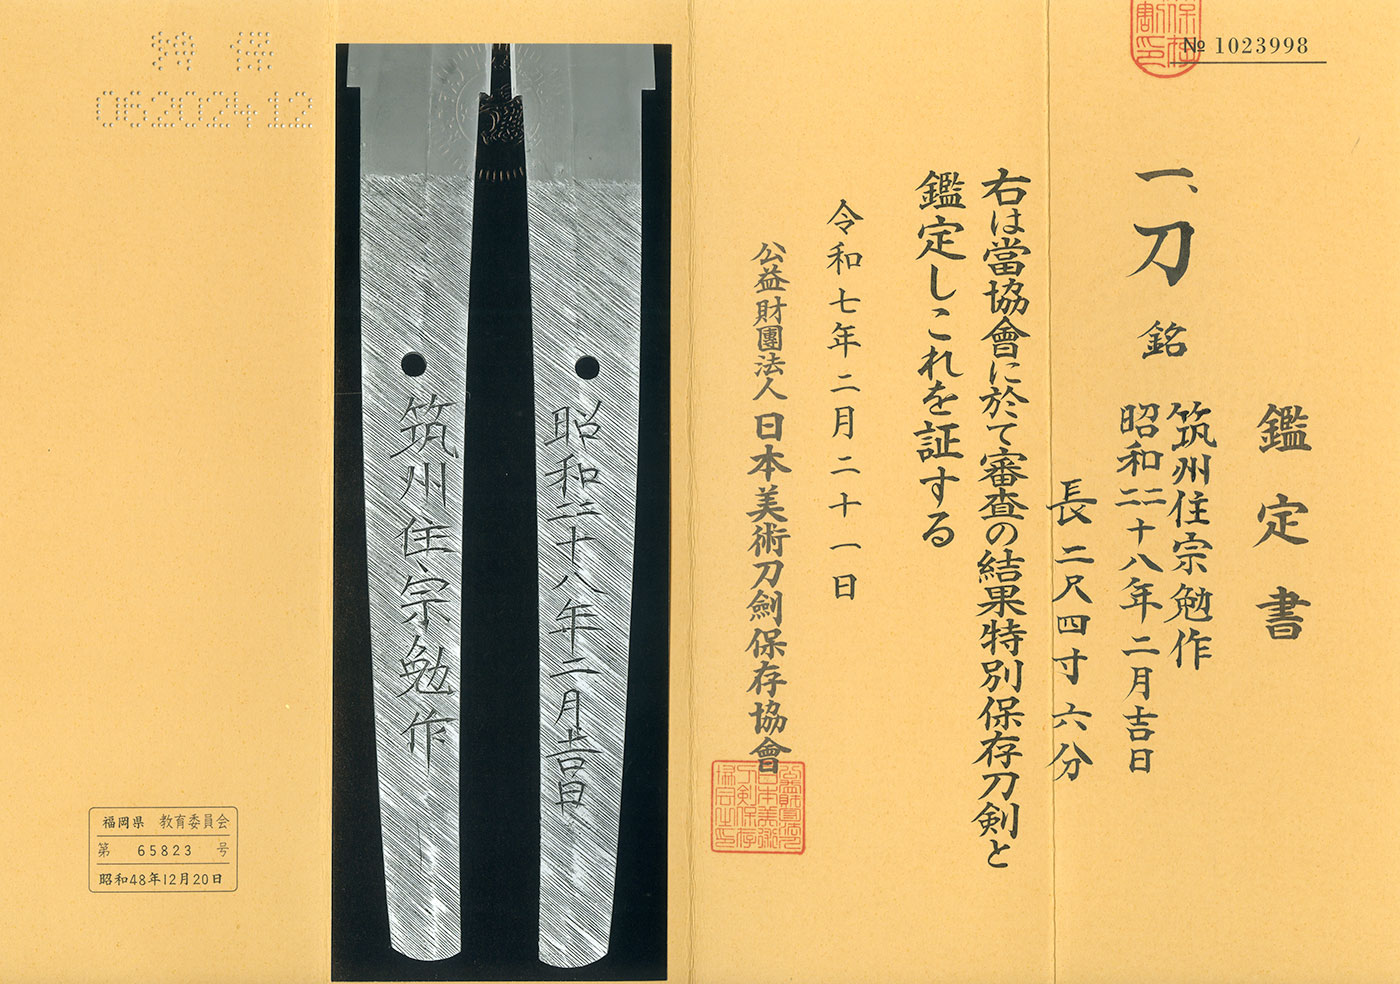 № 1023998
鑑定書
一、刀 銘 筑州住宗勉作
昭和二二十八年二月吉日
長二尺四寸六分
右は當協會に於て審査の結果特別保存刀剣と
鑑定しこれを証する
令和七年二月二十一日
公益財團法人日本美術刀劍保存協會
昭和亖十八年二月吉日
筑州住宗勉作
特保
06202412
福岡県 教育委員会
第 65823 号
昭和48年12月20日